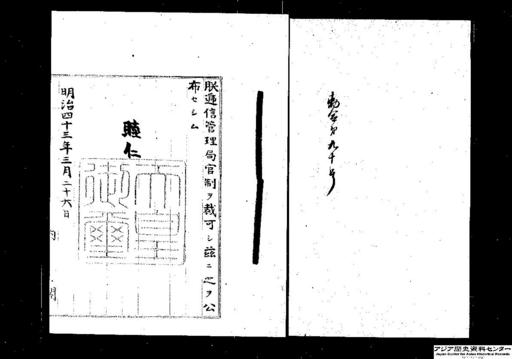 勅令第九十号
朕逓信管理局官制ヲ裁可シ茲ニ之ヲ公
布セシム
睦仁
天皇
御璽
明治四十三年三月二十六日
内閣
アジア歴史資料センター
Japan Center for Asian Historical Records